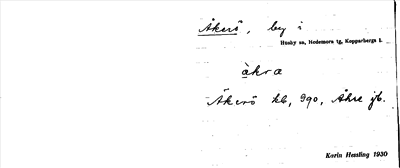 Åkerö, by i
Husby sn, Hedemora tg, Kopparbergs l.
àkra
Åkerö hb, 990, Åhre jb.
Karin Hessling 1930